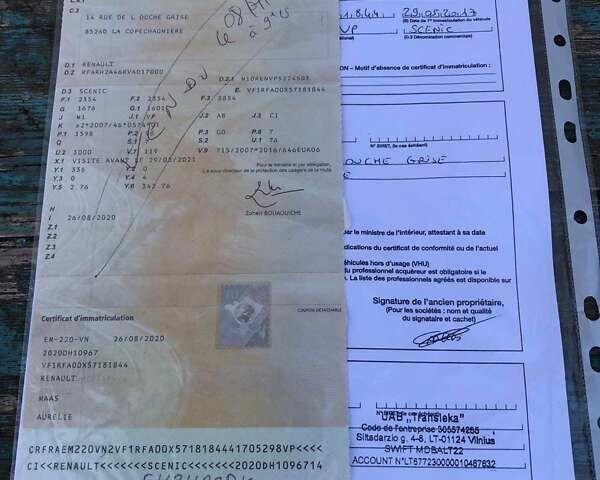 C.4.1
14 RUE DE L OCCHE GRISE
85260 LA COPECHAGNIERE
08
le
à
VENDU
D.1 RENAULT
D.2 RFARH2A46RVAD17000
D.2.1 M10RENVP5224503
D.3 SCENIC
E. VF1RFA00X57181844
F.1 2354 F.2 2354 F.3 3854
G 1676 G.1 1601
J M1 J.1 VP J.2 AB J.3 C1
K e2*2007/46*0574*01
P.1 1598 P.2 96 P.3 GO P.6 7
Q S.1 U.1 76
U.2 3000 V.7 119 V.9 715/2007*2016/646EUR06
X.1 VISITE AVANT LE 29/05/2021
Y.1 336 Y.2 0
Y.3 0 Y.4 4
Y.5 2.76 Y.6 342.76
Pour le ministre et par délégation,
La sous-directeur de la protection des usagers de la route
Zoheir BOUAOUICHE
H
I 26/08/2020
Z.1
Z.2
Z.3
Z.4
COUPON DETACHABLE
Certificat d'immatriculation
ER-220-VN 26/08/2020
2020DH10967
VF1RFA00X57181844
RENAULT
HAAS
AURELIE
CRFRAEM220VN2VF1RFA00X5718184441705298VP<<<<
CI<<RENAULT<<<<<<<SCENIC<<<<<<<2020DH1096714
1.8.44
29.05.2017
(B) Date de 1re immatriculation du véhicule
VP
SCENIC
(D.3) Dénomination commerciale)
ON – Motif d'absence de certificat d'immatriculation :
N° SIRET, (le cas échéant)
OUCHE GRISE
E
par le ministre de l'Intérieur, attestant à sa date
dications du certificat de conformité ou de l'actuel
éhicules hors d'usage (VHU)
du professionnel acquéreur est obligatoire si le
. La liste des professionnels agréés est disponible sur
Signature de l'ancien propriétaire,
(Pour les sociétés : nom et qualité
du signataire et cachet)
N° SIRET, (le cas échéant)
UAB „Transleka"
Code de l'entreprise 305574265
Siltadarzio g. 4-8, LT-01124 Vilnius
SWIFT MDBALT22
ACCOUNT N°LT677230000010487632